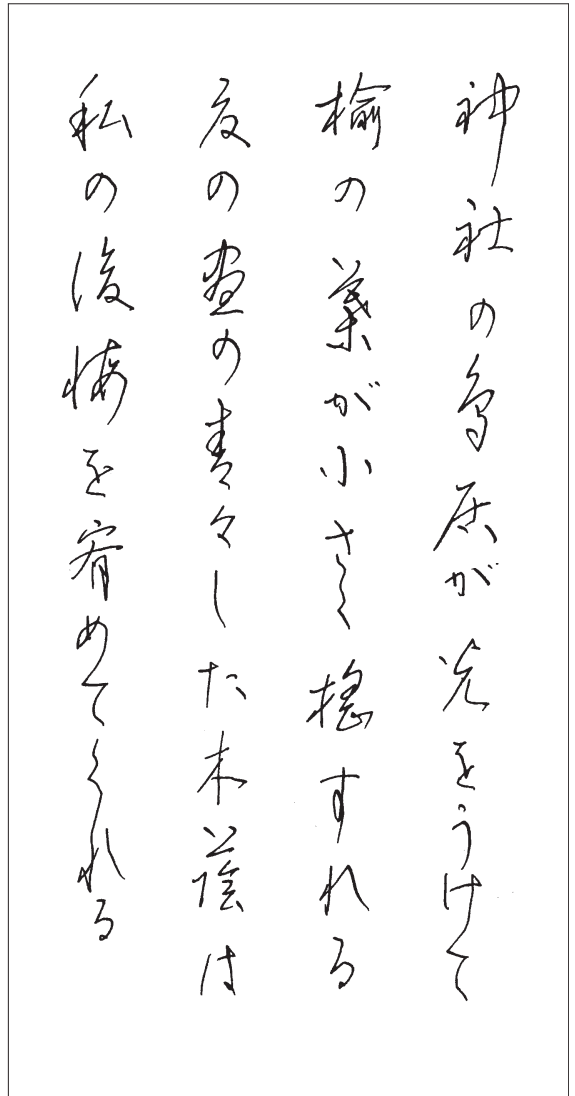 神社の鳥居が光をうけて
楡の葉が小さく揺すれる
夏の昼の青々した木蔭は
私の後悔を宥めてくれる